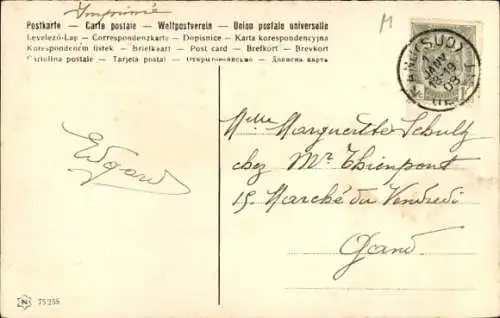 Imprimé
M
Postkarte — Carte postale — Weltpostverein — Union postale universelle
Levelező-Lap — Correspondenzkarte — Dopisnice — Karta korespondencyjna
Korespondenční lístek — Briefkaart — Post card — Brefkort — Brevkort
Cartolina postale — Tarjeta postal — Открытое письмо — Дописна карта
1
JANV
18-19
08
Edgard
Mlle Marguerite Schultz
chez Mr Thienpont
15 Marché du Vendredi
Gand
N 75255